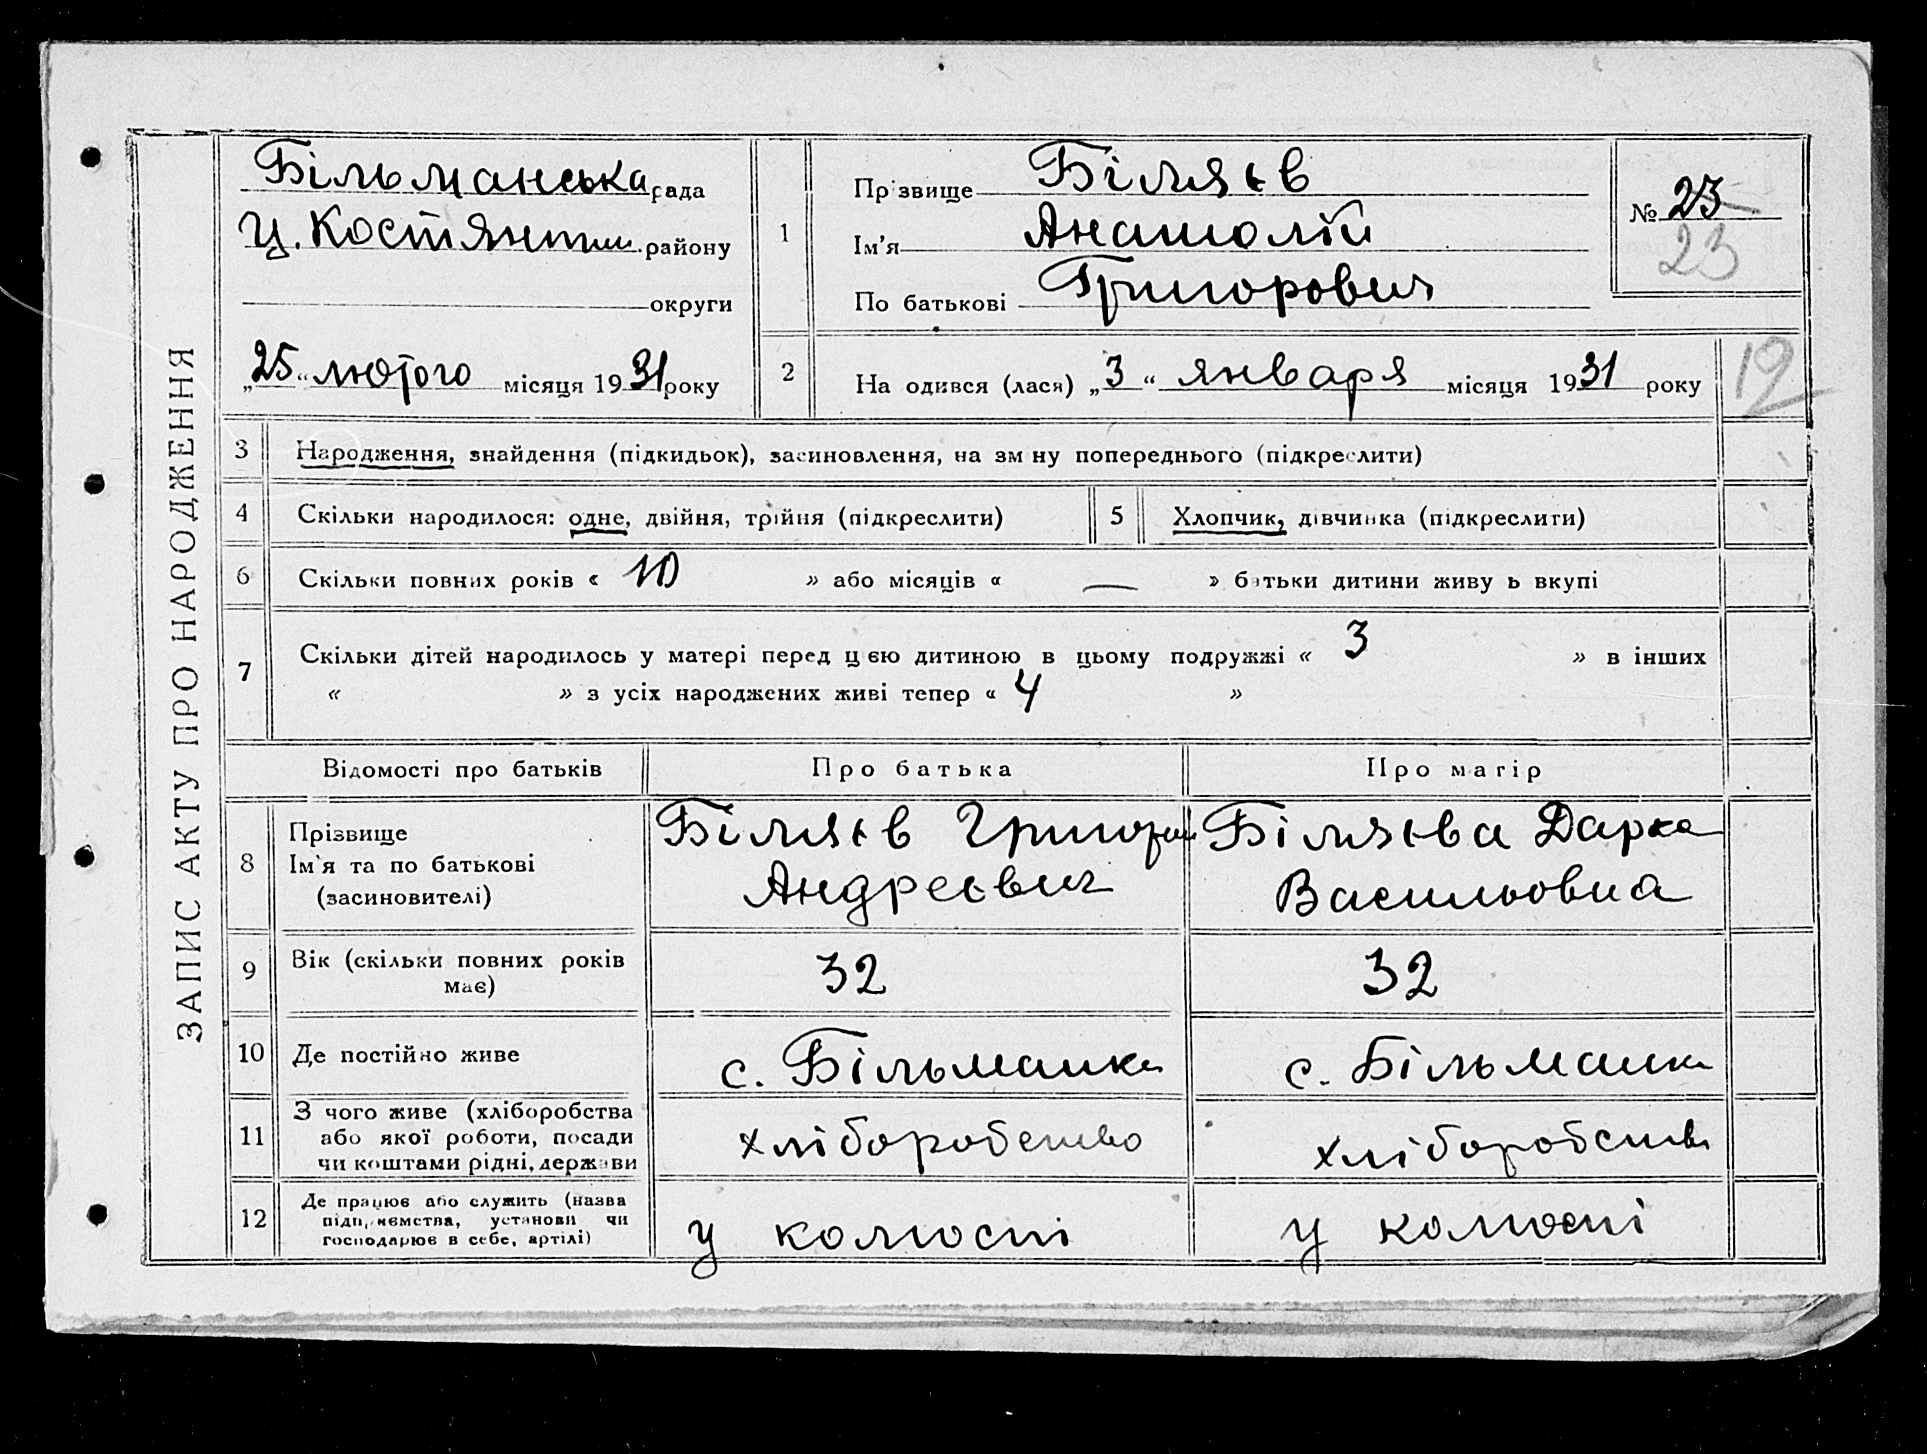 ЗАПИС АКТУ ПРО НАРОДЖЕННЯ
Більманська рада
Ц. Костянтин. району
округи
„25“ лютого місяця 1931 року
1
Прізвище Біляєв
Ім'я Анатолій
По батькові Григорович
№ 23
23
2
На одився (лася) „3“ января місяця 1931 року
12
3 Народження, знайдення (підкидьок), засиновлення, на зм ну попереднього (підкреслити)
4 Скільки народилося: одне, двійня, трійня (підкреслити)
5 Хлопчик, дівчинка (підкреслити)
6 Скільки повних років « 10 » або місяців « — » батьки дитини живу ь вкупі
7 Скільки дітей народилось у матері перед цією дитиною в цьому подружжі « 3 » в інших
« » з усіх народжених живі тепер « 4 »
Відомості про батьків Про батька Про матір
8 Прізвище
Ім'я та по батькові
(засиновителі)
Біляєв Григорий
Андреєвич
Біляєва Дарка
Васильовна
9 Вік (скільки повних років
має)
32 32
10 Де постійно живе с. Більманка с. Більманка
11 З чого живе (хліборобства
або якої роботи, посади
чи коштами рідні, держави
хліборобство хліборобство
12 Де працює або служить (назва
підприємства, установи чи
господарює в себе, артілі)
у колгоспі у колгоспі